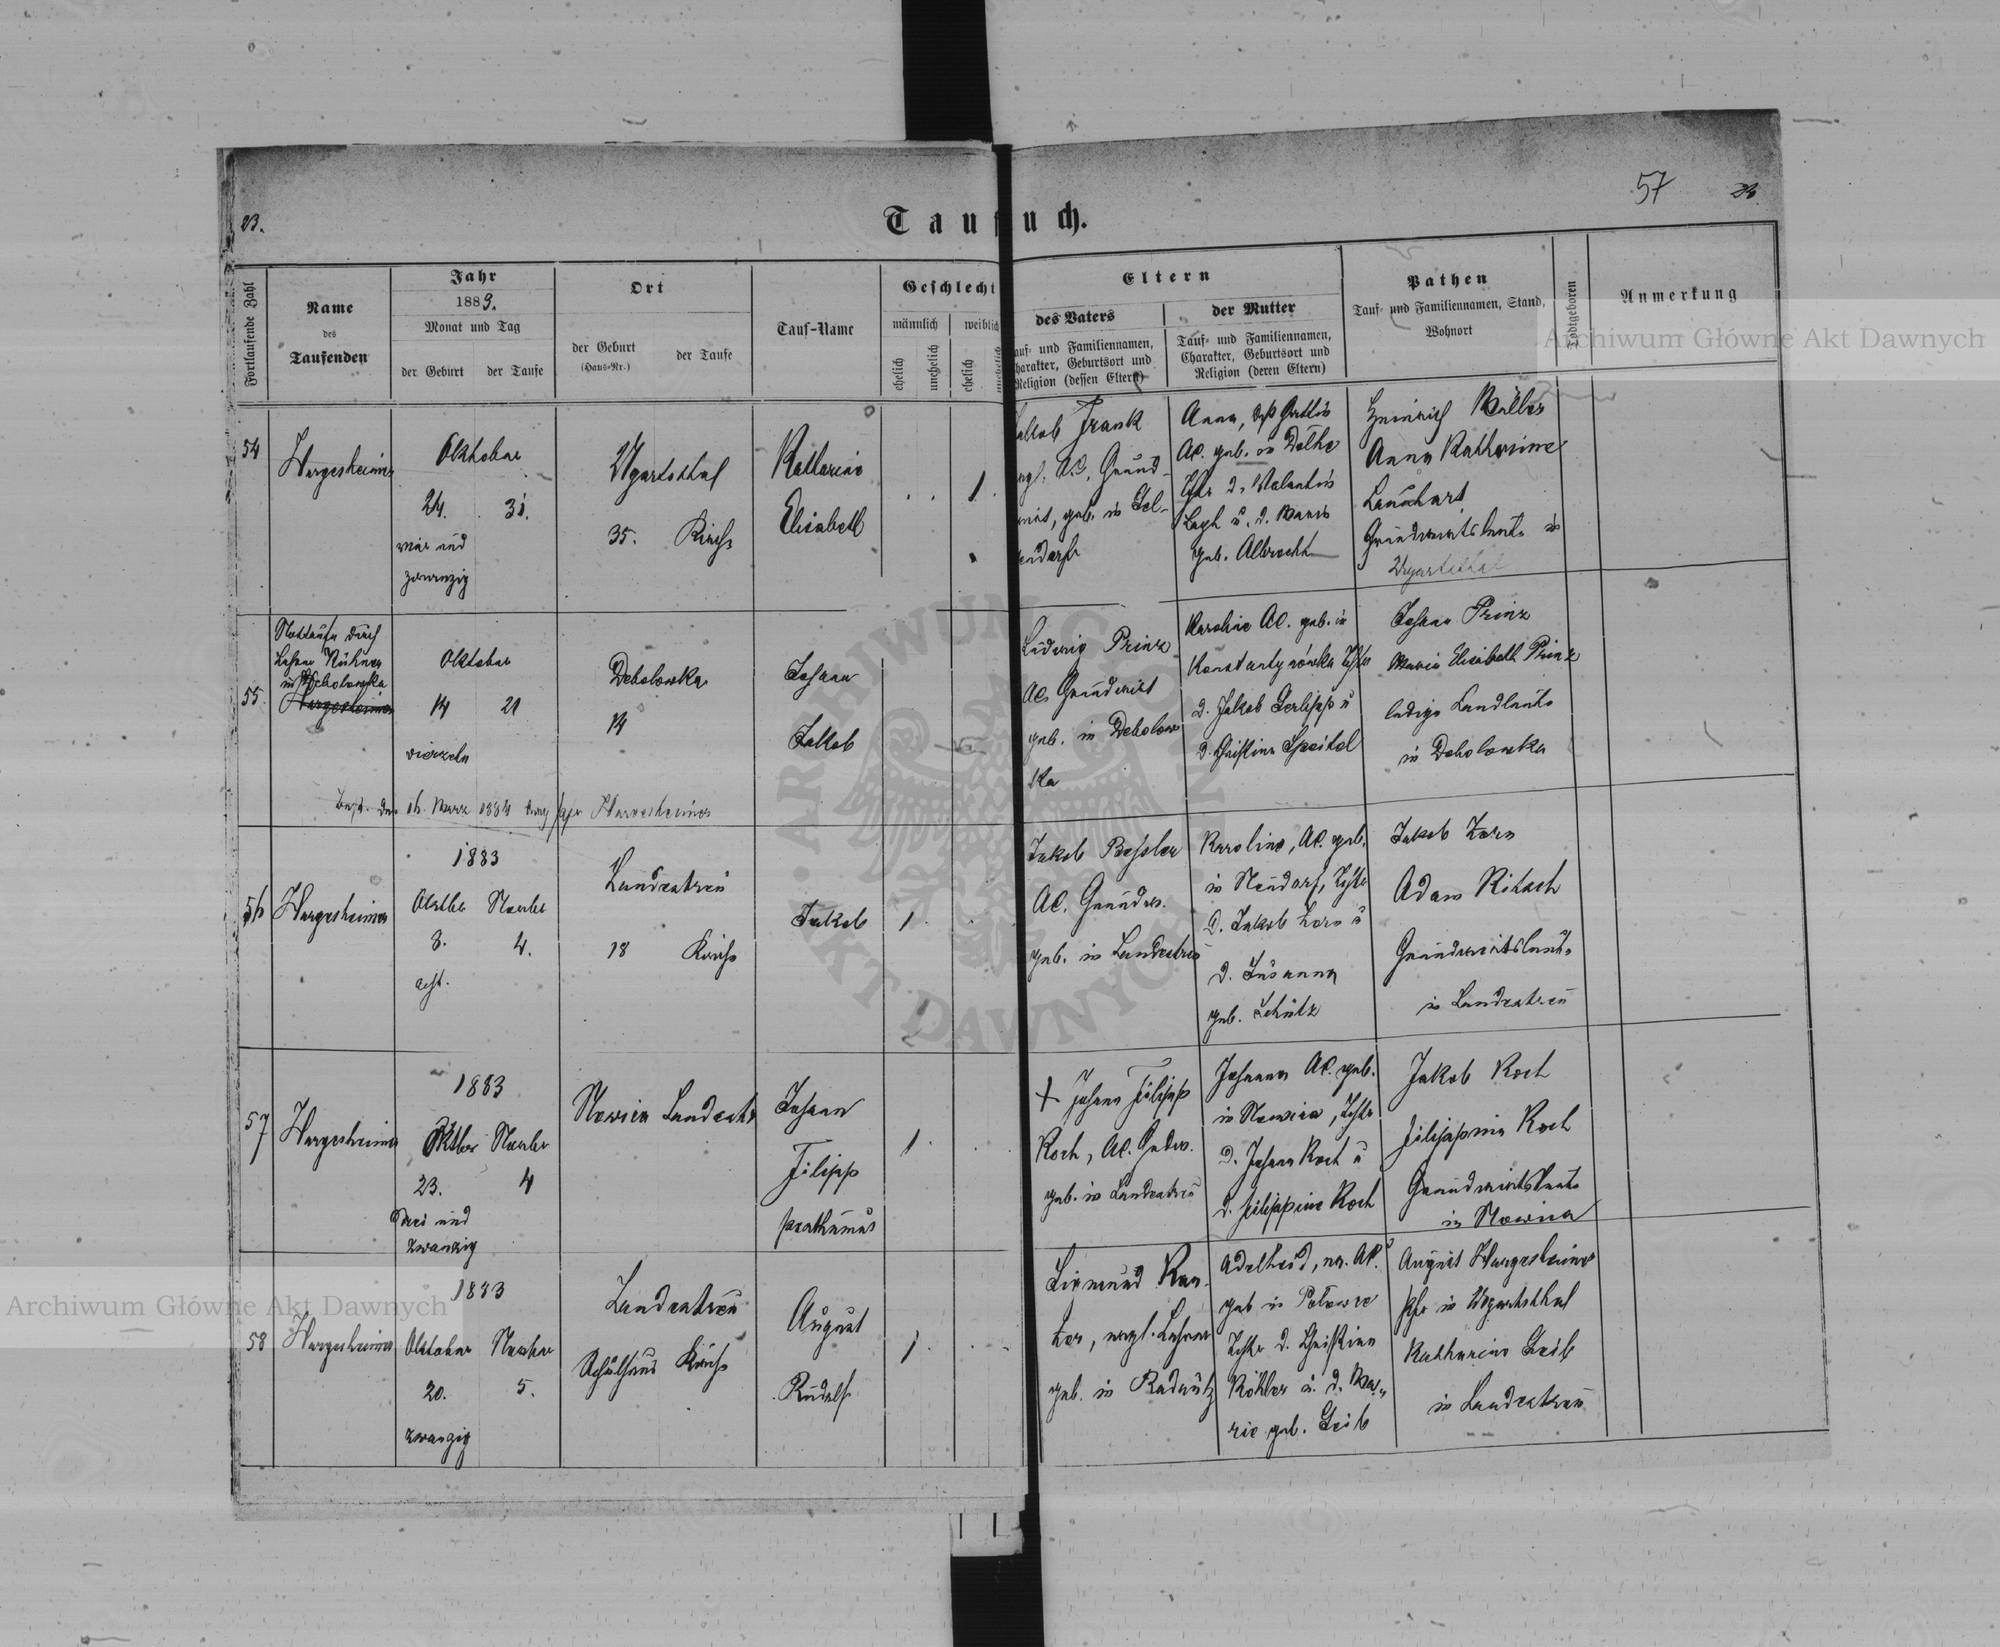 57
23.
Taufbuch.
Fortlaufende Zahl
Name
des
Taufenden
Jahr
1883.
Monat und Tag
der Geburt
der Taufe
Ort
der Geburt
(Haus-Nr.)
der Taufe
Tauf-Name
Geschlecht
männlich
weiblich
ehelich
unehelich
ehelich
unehelich
Eltern
des Vaters
auf- und Familiennamen,
harakter, Geburtsort und
Religion (dessen Eltern)
der Mutter
Tauf- und Familiennamen,
Charakter, Geburtsort und
Religion (deren Eltern)
Pathen
Tauf- und Familiennamen, Stand,
Wohnort
Todtgeboren
Anmerkung
54
Hargesheimer
Oktober
24. 31.
vier und
zwanzig
Ugartsthal
35. Kirche
Katharine
Elisabeth
1
Jakob Frank
Grund-
wirt, geb. in Gel-
sendorf
Anna,
AC. geb. in Dolhe
Tchtr d. Valentin
u. d. Marie
geb. Albrecht
Heinrich Müller
Anna Katharine
Lanchart
Grundwirtsleute in
Ugartsthal
55
Nottaufe durch
Lehrer Kühner
in Debolowka
Hargesheimer
Oktober
14 21
vierzehn
Debolowka
14
Johann
Jakob
Ludwig Prinz
AC Grundwirt
geb. in Debolow
ka
Karoline AC. geb. in
Konstantynówka Tchtr
d. Jakob u
d. Christine Speitel
Johann Prinz
Marie Elisabeth Prinz
ledige Landleute
in Debolowka
März 1884 durch Hargesheimer
56
Hargesheimer
1883
Oktbr Novbr
8. 4.
acht.
Landestreu
18 Kirche
Jakob
1
Jakob Bessler
AC. Grundw.
geb. in Landestreu
Karoline, AC. geb.
in Neudorf, Tchtr
d. Jakob Zorn u
d. Susanna
geb. Schütz
Jakob Zorn
Adam Ritsch
Grundwirtsleute
in Landestreu
57
Hargesheimer
1883
Oktbr Novbr
23. 4
drei und
zwanzig
Nowica Landestr
Johann
Filipp
posthumus
1
+ Johann Filipp
Koch, AC. Grdw.
geb. in Landestreu
Johanna AC. geb.
in Nowica, Tchtr
d. Johann Koch u
d. Filippine Koch
Jakob Koch
Filippine Koch
Grundwirtsleute
in Nowica
58
Hargesheimer
1883
Oktober Novber
20. 5.
zwanzig
Landestreu
Schulhaus Kirche
August
Rudolf
1
Sigmund Kan-
tor, evgl. Lehrer
geb. in Radautz
Adelheid, ev. AC.
geb in
Tchtr d. Christian
Köhler u. d. Ma-
rie geb. Geib
August Hargesheimer
Pfr in Ugartsthal
Katharine Geib
in Landestreu
Archiwum Główne Akt Dawnych
Archiwum Główne Akt Dawnych
ARCHIWUM GŁÓWNE AKT DAWNYCH